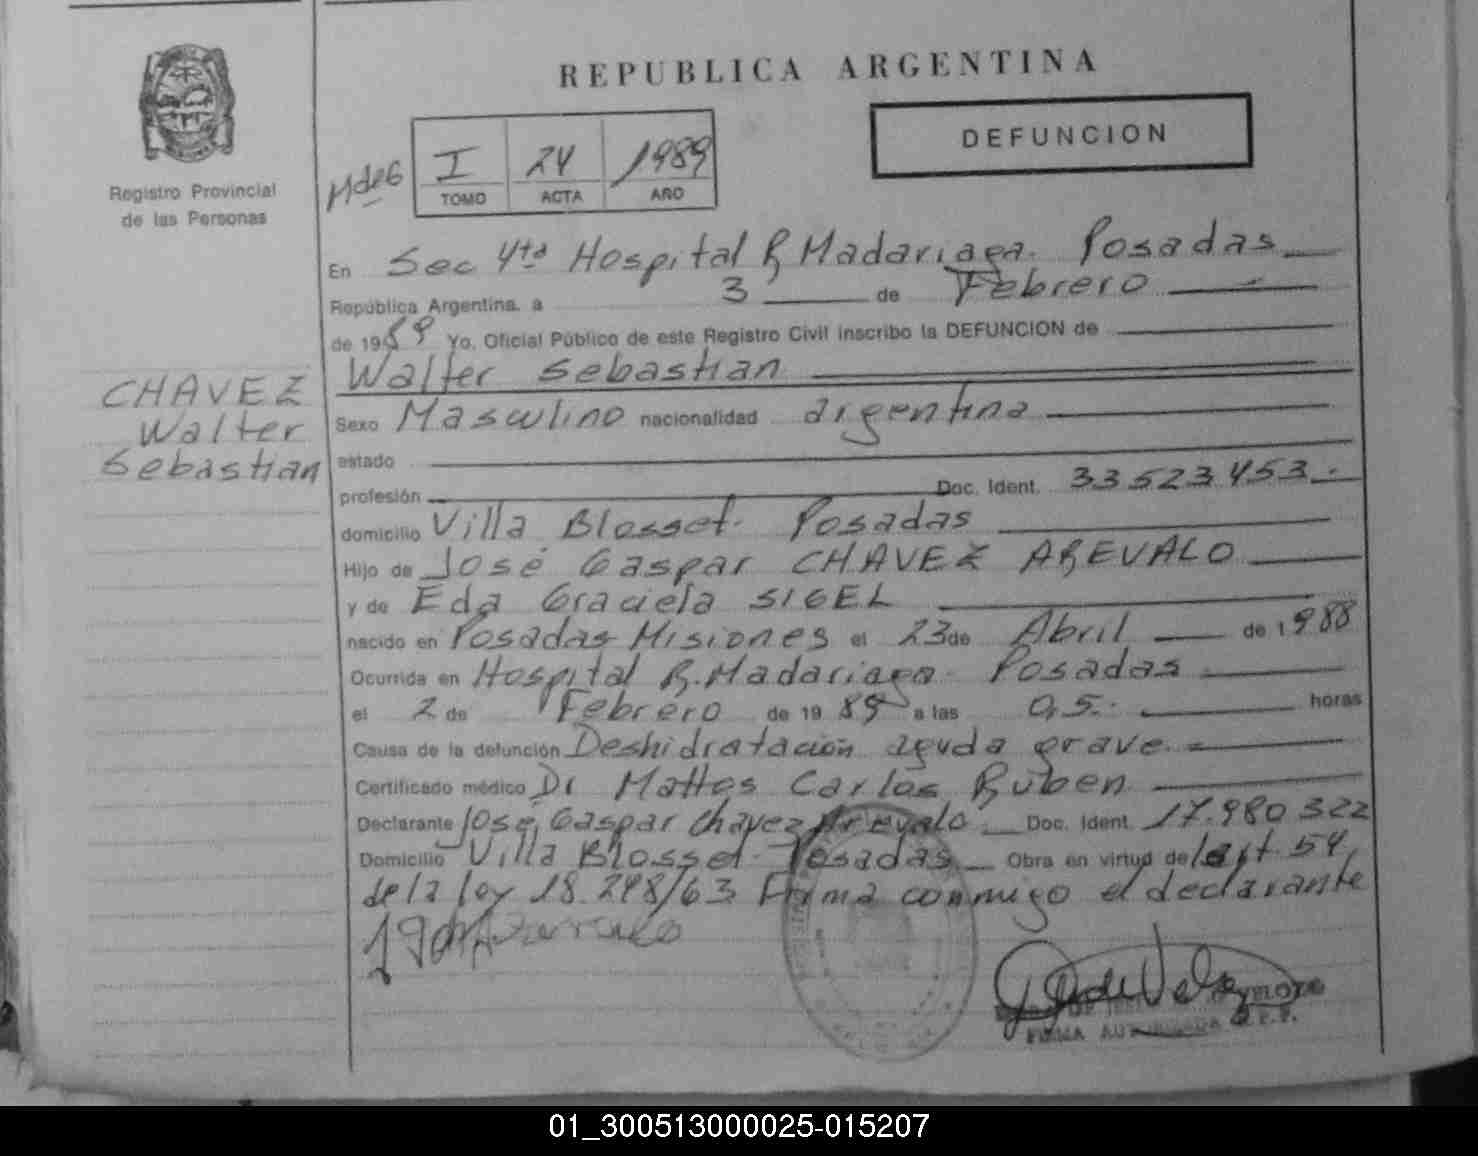 REPUBLICA ARGENTINA
DEFUNCION
Registro Provincial
de las Personas
MdeG
I 24 1989
TOMO ACTA AÑO
En Sec 4ta Hospital R Madariaga. Posadas
República Argentina, a 3 de Febrero
de 1989 Yo, Oficial Público de este Registro Civil inscribo la DEFUNCION de
Walter Sebastian
CHAVEZ
Walter
Sebastian
Sexo Masculino nacionalidad argentina
estado
profesión Doc. Ident. 33523453.
domicilio Villa Blosset. Posadas
Hijo de José Gaspar CHAVEZ AREVALO
y de Eda Graciela SIGEL
nacido en Posadas Misiones el 23 de Abril de 1988
Ocurrida en Hospital R. Madariaga - Posadas
el 2 de Febrero de 1989 a las 0,5. horas
Causa de la defunción Deshidratación aguda grave.
Certificado médico Dr Mattos Carlos Ruben
Declarante José Gaspar Chavez Arevalo Doc. Ident. 17.980322
Domicilio Villa Blosset Posadas Obra en virtud del art 54
de la ley 18.248/63 Firma conmigo el declarante
FIRMA
01_300513000025-015207